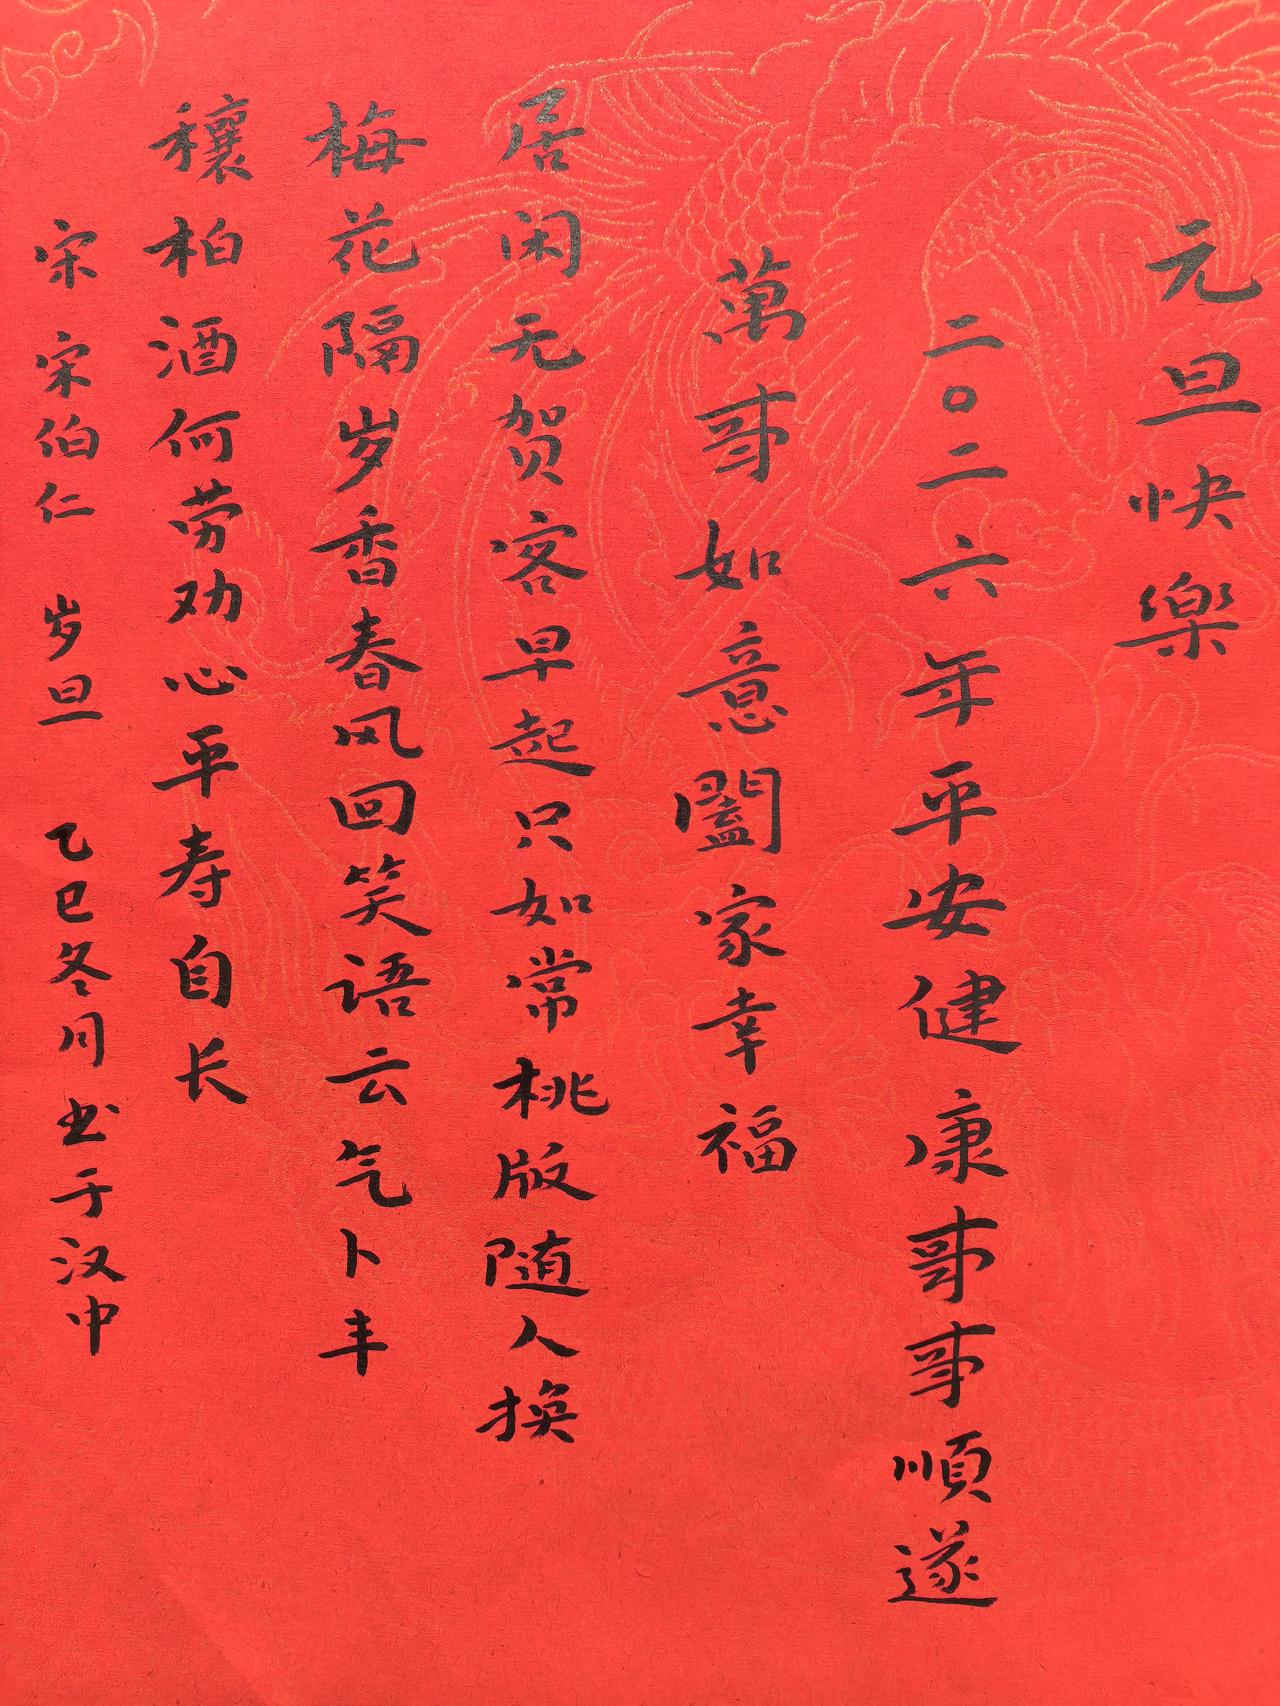 元旦快樂
二〇二六年平安健康事事順遂
萬事如意闔家幸福
居闲无贺客早起只如常桃版随人换
梅花隔岁香春风回笑语云气卜丰
穰柏酒何劳劝心平寿自长
宋 宋伯仁 岁旦 乙巳冬月书于汉中